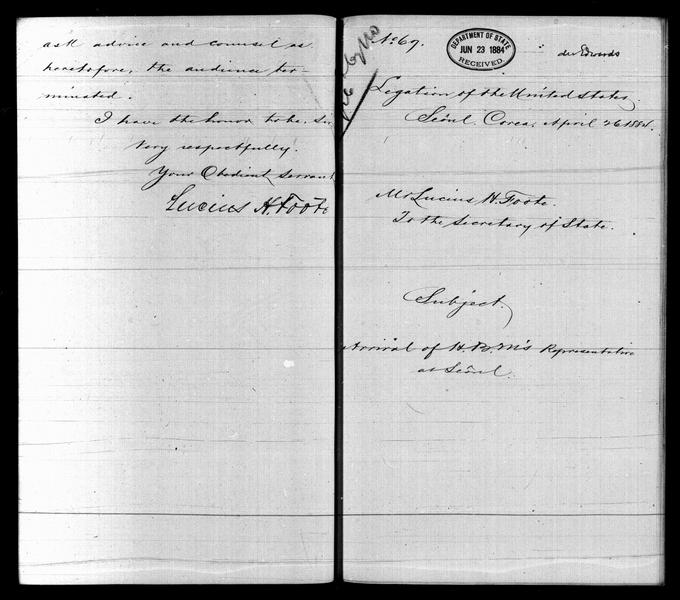 ask advice and counsel as
heretofore, the audience ter-
minated.
I have the honor to be, Sir
Very respectfully.
Your Obedient Servant
Lucius H. Foote
No 69.
DEPARTMENT OF STATE
JUN 23 1884
RECEIVED
Legation of the United States
Seoul. Corea. April 26 1884.
Mr Lucius H. Foote.
To the Secretary of State.
Subject.
Arrival of H. B. M's Representative
at Seoul.